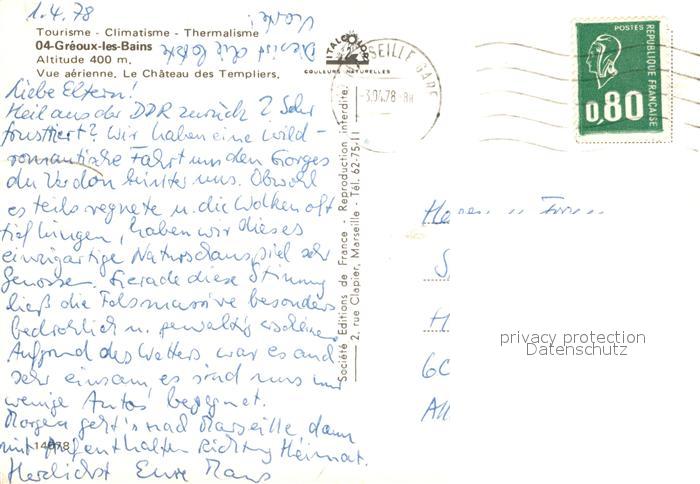 1.4.78
Karte!
Dies ist die letzte
Tourisme - Climatisme - Thermalisme
04-Gréoux-les-Bains
Altitude 400 m.
Vue aérienne, Le Château des Templiers,
ITALCOLOR
COULEURS NATURELLES
MARSEILLE GARE
-3.04.78-8H
POSTES
RÉPUBLIQUE FRANÇAISE
0,80
Société Editions de France - Reproduction interdite.
2, rue Clapier, Marseille - Tél. 62-75-11
Liebe Eltern!
Heil aus der DDR zurück? Sehr
frustriert? Wir haben eine wild-
romantische Fahrt um den Gorges
du Verdon hinter uns. Obwohl
es teils regnete u. die Wolken oft
tief hingen, haben wir dieses
einzigartige Naturschauspiel sehr
genossen. Gerade diese Stimmung
ließ die Felsmassive besonders
bedrohlich u. gewaltig erscheinen.
Aufgrund des Wetters war es auch
sehr einsam, es sind uns nur
wenige Autos begegnet.
Morgen geht's nach Marseille, dann
mit Aufenthalten Richtung Heimat.
Herzlichst Eure
14078
privacy protection
Datenschutz